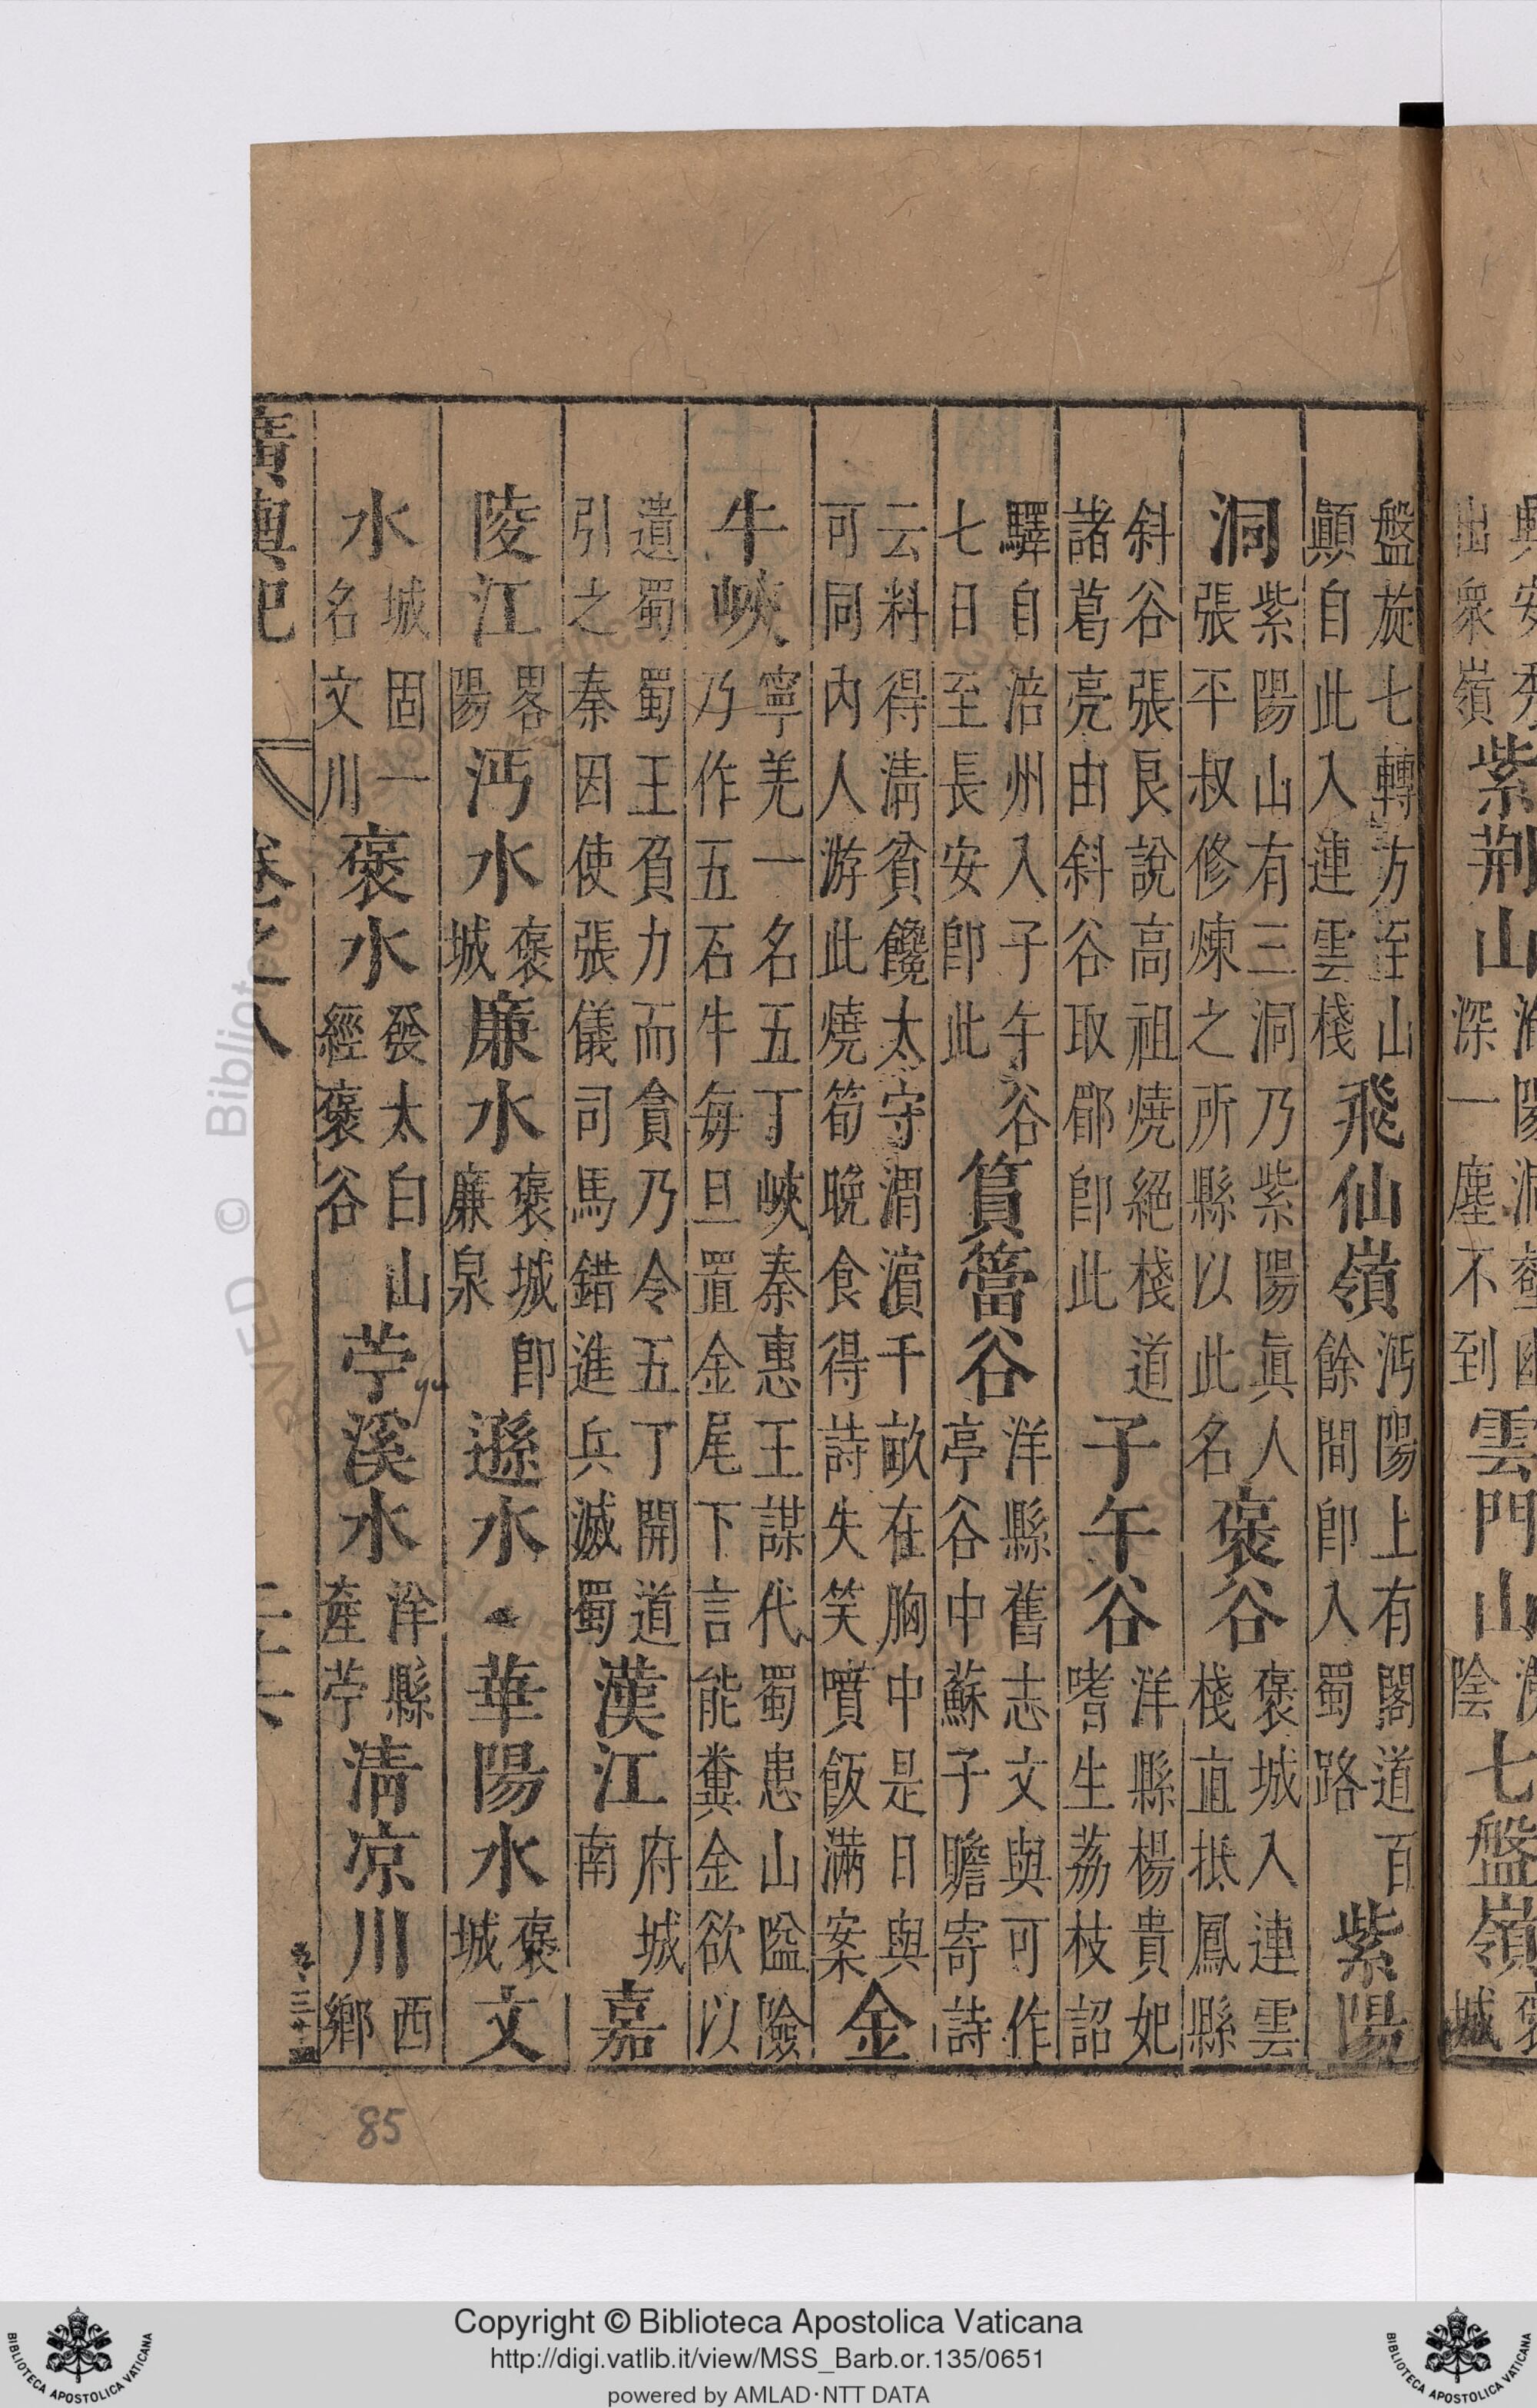 出衆嶺 紫荆山 深一塵不到 雲門山 陰 七盤嶺 城
盤旋七轉方至山顛自此入連雲棧 飛仙嶺 沔陽上有閣道百餘間即入蜀路 紫陽
洞 紫陽山有三洞乃紫陽眞人張平叔修煉之所縣以此名 褒谷 褒城入連雲棧直抵鳳縣
斜谷張良說高祖燒絕棧道諸葛亮由斜谷取郿卽此 子午谷 洋縣楊貴妃嗜生荔枝詔
驛自涪州入子午谷七日至長安卽此 篔簹谷 洋縣舊志文與可作亭谷中蘇子瞻寄詩
云料得清貧饞太守渭濵千畝在胸中是日與可同內人游此燒筍晚食得詩失笑噴飯滿案 金
牛峽 寧羌一名五丁峽秦惠王謀代蜀患山隘險乃作五石牛每旦置金尾下言能糞金欲以
遺蜀蜀王負力而貪乃令五丁開道引之秦因使張儀司馬錯進兵滅蜀 漢江 府城南 嘉
陵江 畧陽 沔水 褒城 廉水 褒城卽廉泉 遜水 華陽水 褒城 文
水 城固一名文川 褒水 發太白山經褒谷 苧溪水 洋縣產苧 清凉川 西鄉
廣輿記 卷之八
yu
85
Copyright © Biblioteca Apostolica Vaticana
http://digi.vatlib.it/view/MSS_Barb.or.135/0651
powered by AMLAD·NTT DATA
BIBLIOTECA APOSTOLICA VATICANA
BIBLIOTECA APOSTOLICA VATICANA